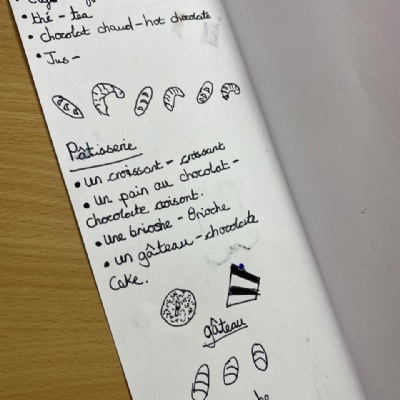 • thé - tea
• chocolat chaud - hot chocolate
• Jus -
Pâtisserie
• un croissant - crossant
• un pain au chocolat -
chocolate coisont.
• une brioche - Brioche
• un gâteau - chocolate
Cake.
gâteau